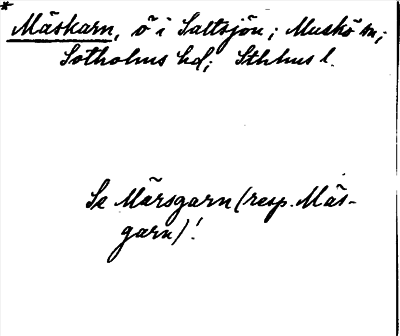 * Mäskarn, ö i Saltsjön; Muskö sn;
Sotholms hd; Sthlms l.
Se Märsgarn (resp. Mäs-
garn)!